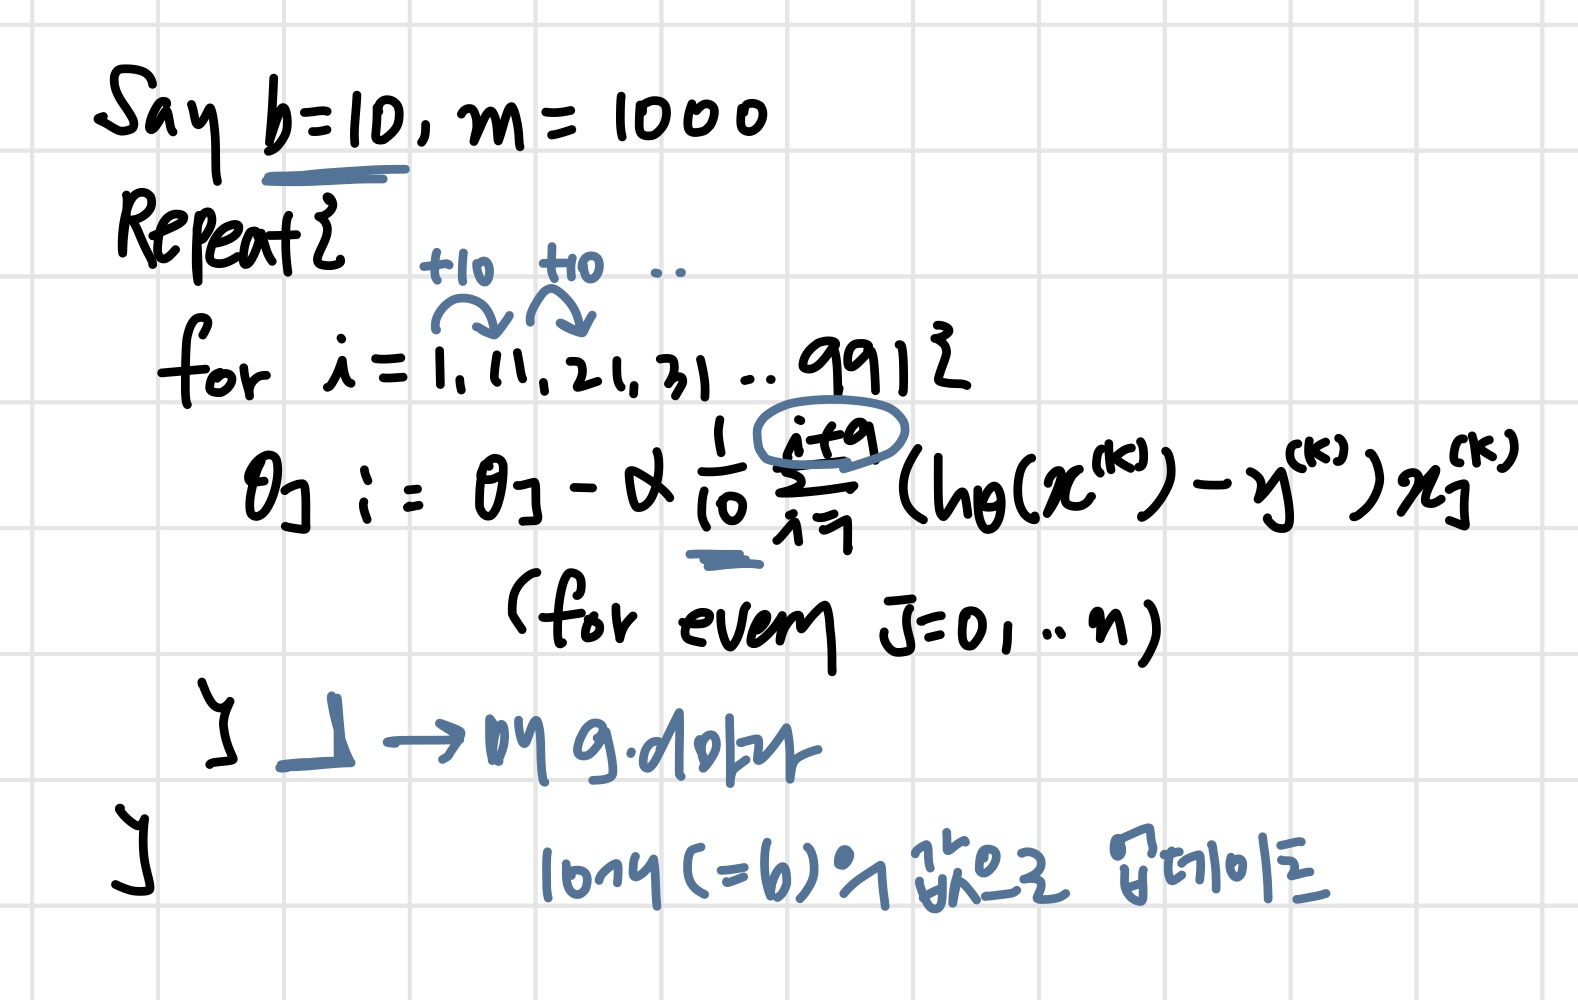 Say b=10, m=1000
Repeat{
+10 +10 ..
for i=1, 11, 21, 31 .. 991{
θJ := θJ - α 1/10 Σ i+9 i=1 (hθ(x^(k)) - y^(k)) xJ^(k)
(for every J=0, .. n)
} → 매 g.d마다
} 10개(=b)의 값으로 업데이트